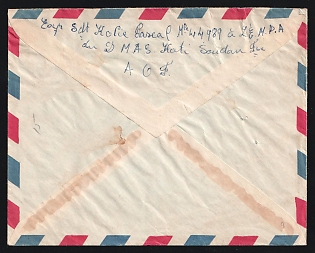 Exp Sgt Kolie Pascal Mle 44989 à l'E.M.P.A
du D MAS Kati Soudan Fçe
A O F